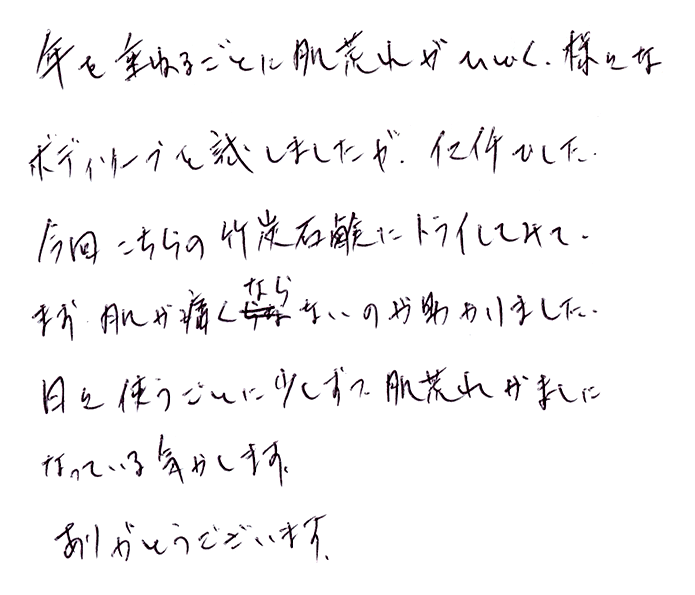 年を重ねるごとに肌荒れがひどく、様々な
ボディソープを試しましたが、仕様でした。
今回こちらの竹炭石鹸にトライしてみて、
まず肌が痛くならないのが助かりました。
日々使うごとに少しずつ肌荒れがましに
なっている気がします。
ありがとうございます。